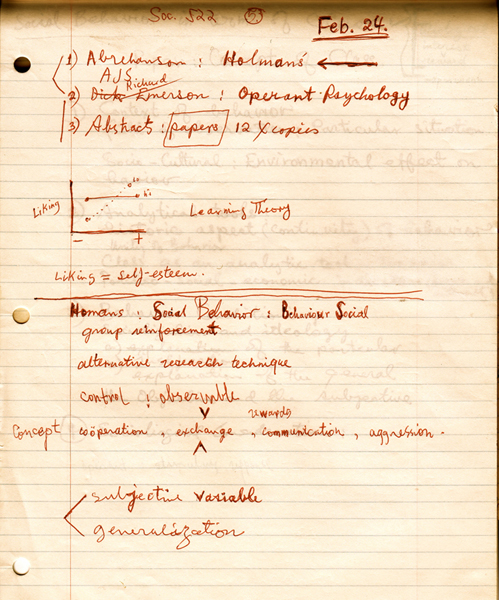 Soc. 522 (5)
Feb. 24.
1) Abrehamson : Holmans'
AJS Richard
2) Dick Emerson : Operant Psychology
3) Abstract : papers 12 Xcopies
lo
hi
Liking
Learning Theory
- +
Liking = self-esteem.
Homans : Social Behavior : Behaviour Social
group reinforcement
alternative research technique
control : observable
rewards
Concept coöperation , exchange , communication , aggression .
subjective variable
generalization